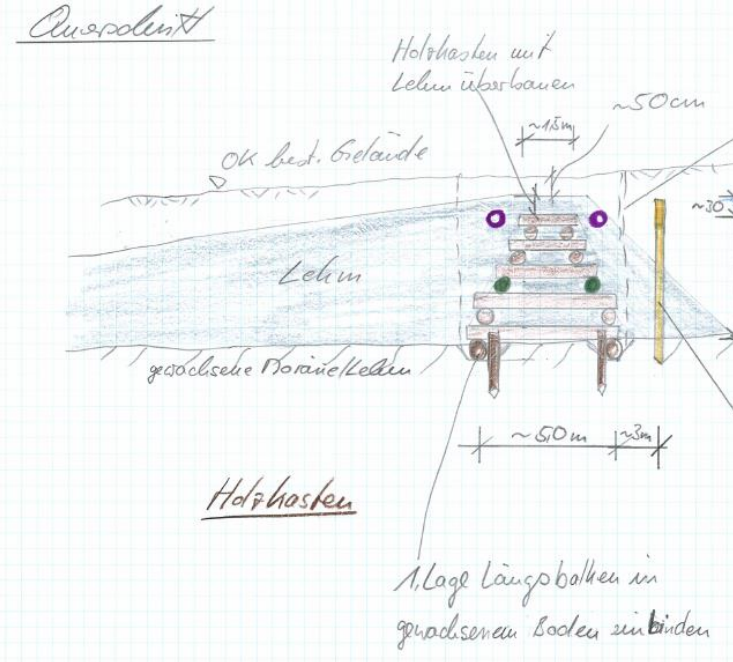 Querschnitt
Holzkasten mit
Lehm überbauen
~50cm
~1,5m
OK best. Gelände
~30
Lehm
gewachsene Moräne/Lehm
~5,0m
~3m
Holzkasten
1. Lage Längsbalken in
gewachsenem Boden einbinden